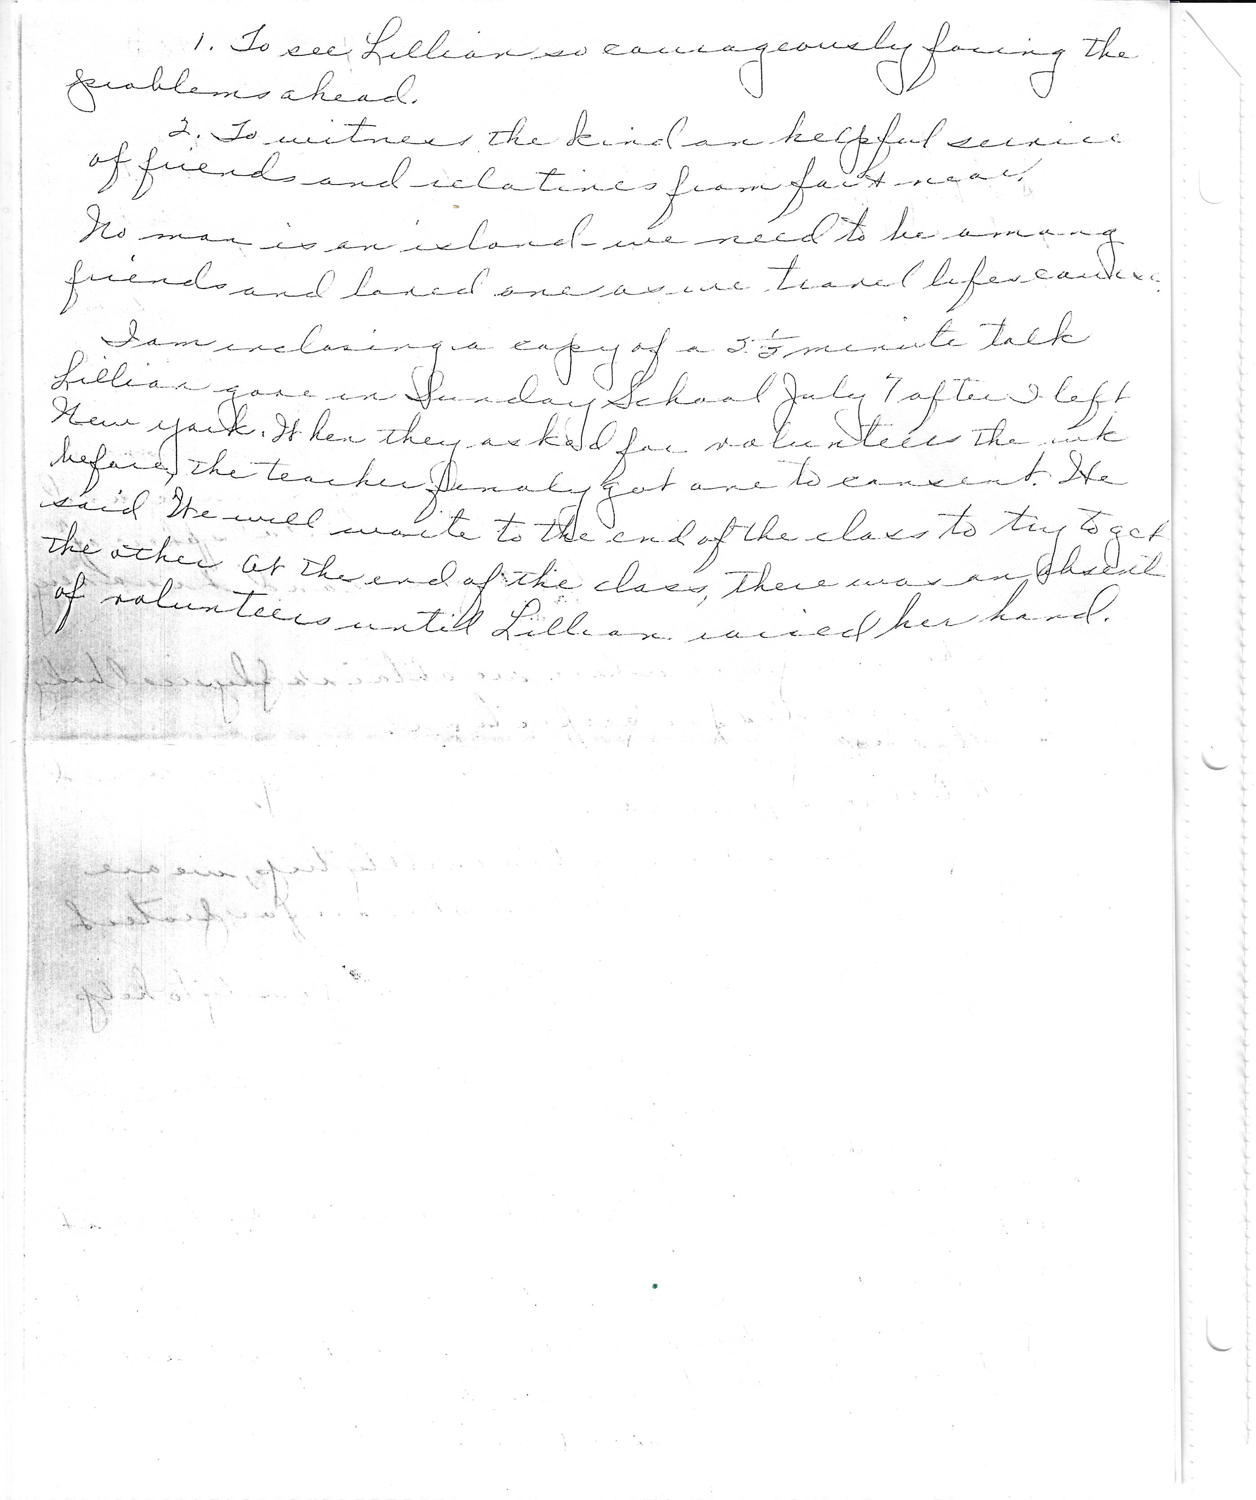 1. To see Lillian so courageously facing the
problems ahead.
2. To witness the kind an helpful service
of friends and relatives from far & near.
No man is an island - we need to be among
friends and loved ones as we travel lifes course.
I am inclosing a copy of a 2 1/2 minute talk
Lillian gave in Sunday School July 7 after I left
New York. When they asked for volunteers the wk
before, the teacher finaly got one to consent. He
said We will waite to the end of the class to try to get
the other At the end of the class, there was an absent
of volunteers until Lillian raised her hand.